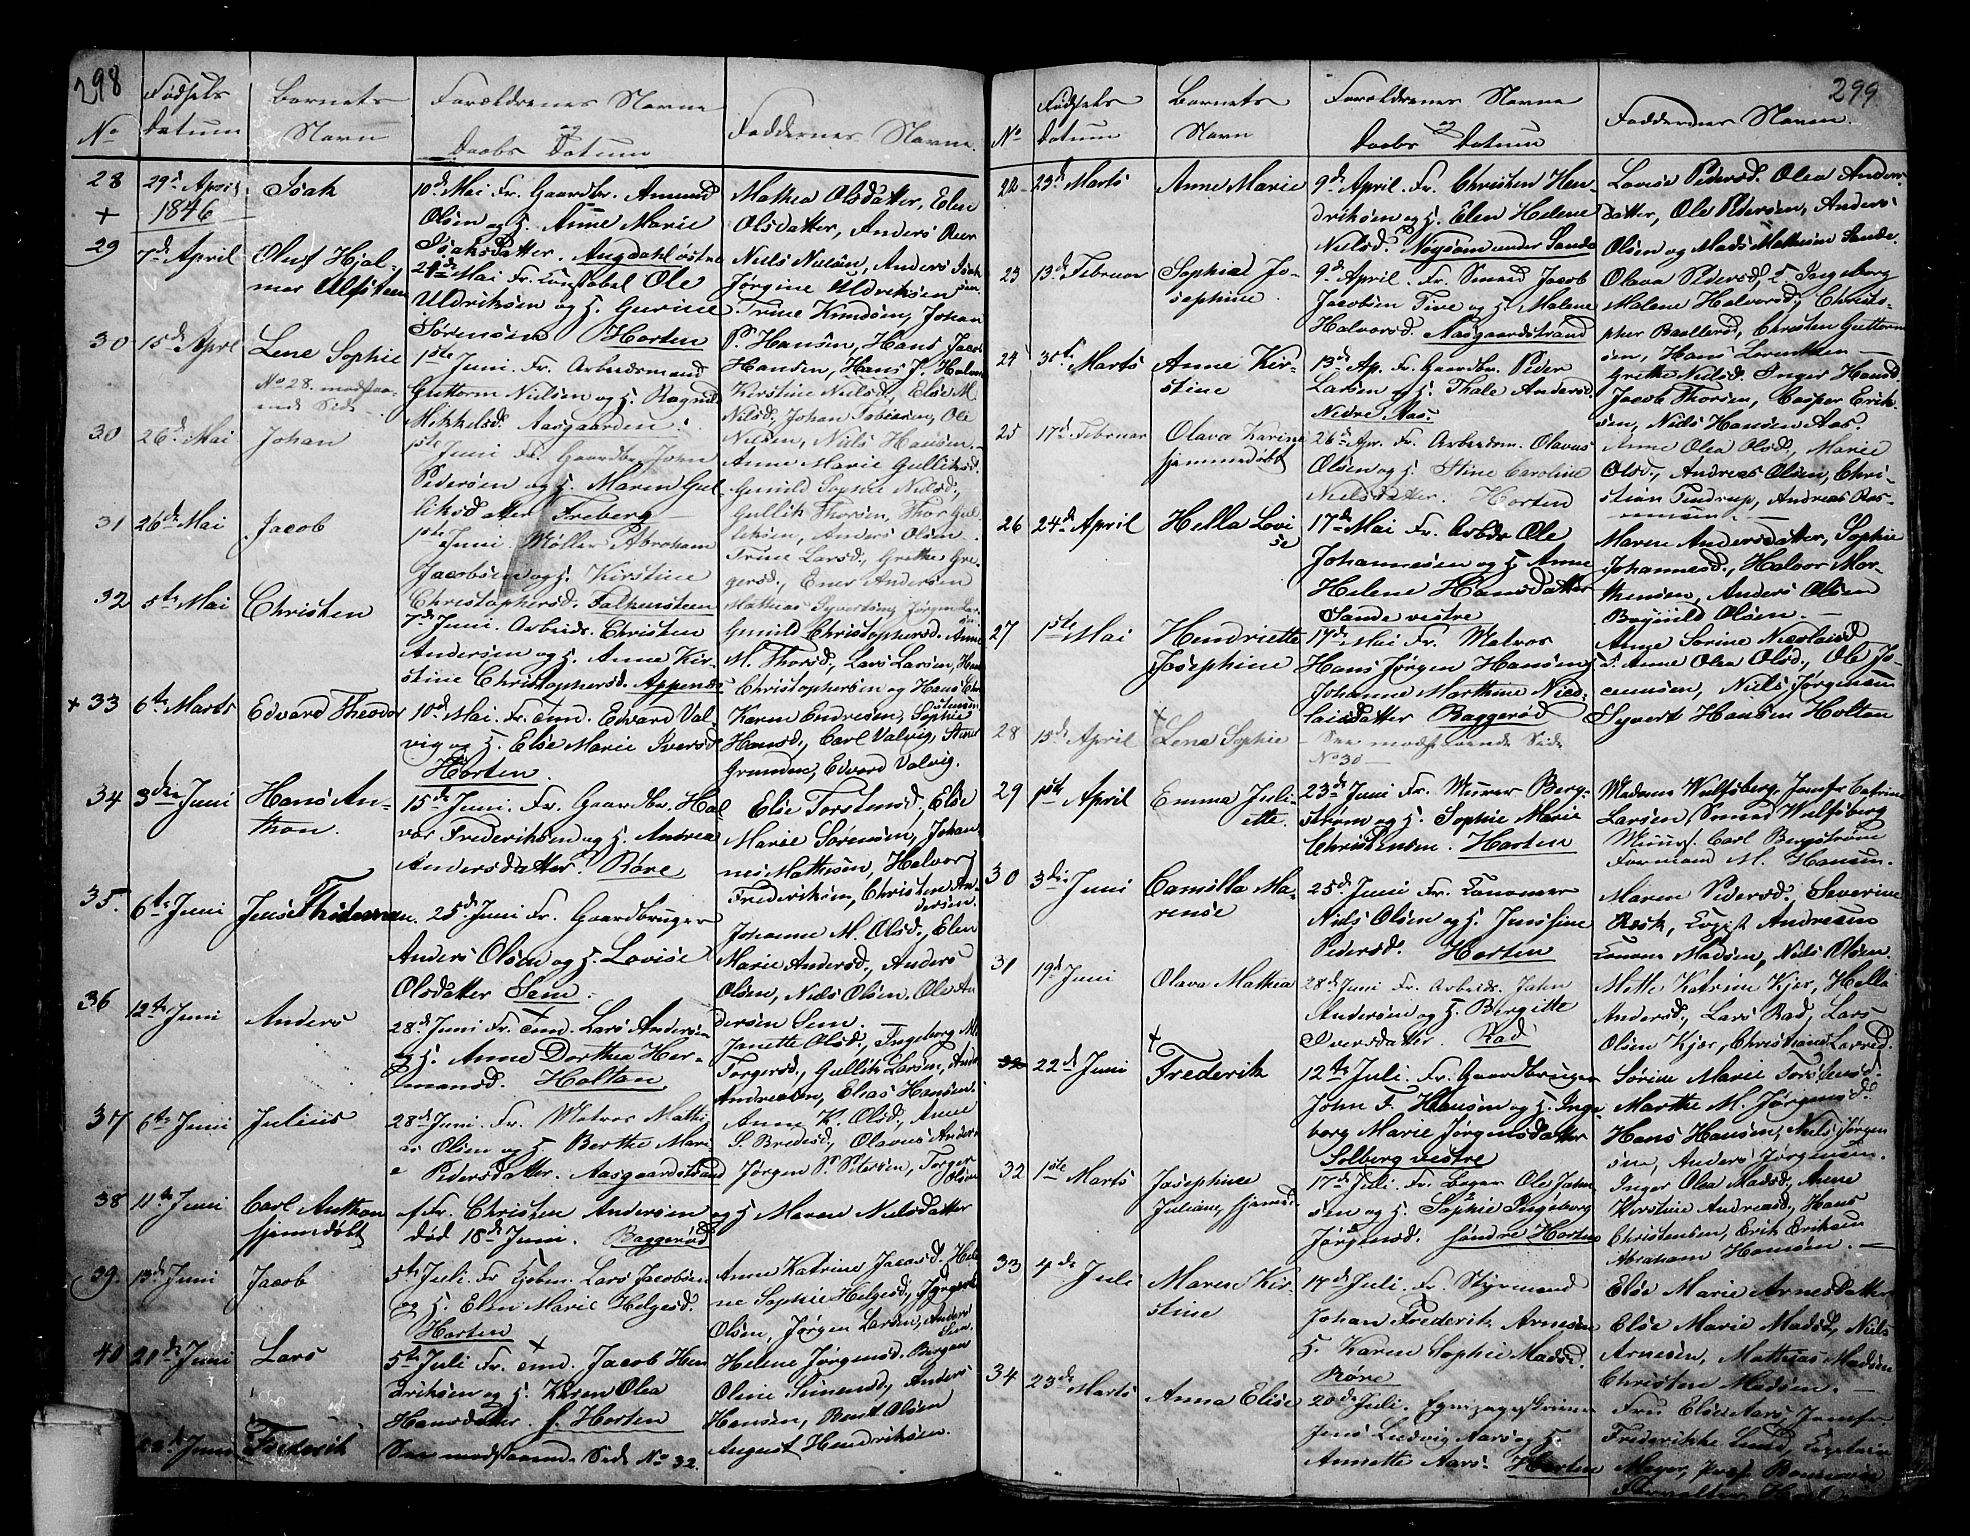 298
No
Fødsels
Datum
Barnets
Navn
Forældrenes Navne
og
Daabs Datum
Faddernes Navne
28
29d April
1846
Isak
10d Mai Fr. Gaardbr. Amund
Olsen og H. Anne Marie
Isaksdatter. Augdahl østre
Mathea Olsdatter, Elen
Olsdatter, Anders Peer
Niels Nielsen, Anders Isak
sen.
29
7d April
Oluf Hjal-
mar Ulfsteen
24d Mai Fr. Constabel Ole
Uldriksen og H. Gurine
Sørensen Horten
Jørgine Uldriksen
Trine Knudsen, Johan
P. Hansen, Hans Jacob
Hansen, Hans J. Halvor
30
15d Aprl
Lene Sophie
No 28. modstaa-
ende Side
1ste Juni Fr. Arbeidsmand
Guttorm Nielsen og H. Ragnil
Mikkelsd. Aasgaarden
Kirstine Nielsd., Else M.
Nilsd., Johan Tobiesen, Ole
Nielsen, Niels Hansen
30
26d Mai
Johan
1ste Juni Fr. Gaardbr. John
Pedersen og H. Maren Gul-
liksdatter Freberg
Anne Marie Gulliksd.
Gunild Sophie Nielsd.,
Gullik Thorsen, Thor Gul-
liksen, Anders Olsen
31
26d Mai
Jacob
1ste Juni Møller Abraham
Jacobsen og H. Kirstine
Christophersd. Falkensteen
Trine Larsd., Grethe Gre-
gersd., Ener Andersen
Mathias Syvertsen, Jørgen Lar-
32
5te Mai
Christen
7d Juni. Arbeids. Christen
Andersen og H. Anne Kir-
stine Christophersd. Appenæs
Gunild Christophersd. Anne
M. Thorsd., Lars Larsen,
Christophersen og Hans Chri
stensen
+ 33
6te Marts
Edvard Theodor
10d Mai. Fr. Tmd. Edvard Val-
vig og H. Else Marie Iversd.
Horten
Karen Endresen, Sophie
Hansd., Carl Valvig,
Edvard Valvig.
34
3die Juni
Hans An-
thon.
15d Juni. Fr. Gaardbr. Hal
vor Frederiksen og H. Andrea
Andersdatter. Røre
Else Torstensd., Else
Marie Sørensen, Johan
nes Mathisen, Halvor
Frederiksen, Christen An
dersen.
35.
6te Juni
Jens Thideman
25d Juni Fr. Gaardbruger
Anders Olsen og H. Lovise
Olsdatter Sem
Johanne M. Olsd., Elen
Marie Andersd., Anders
Olsen, Niels Olsen, Ole An
dersen Sem.
36
12te Juni
Anders
28d Juni Fr. Tmd. Lars Anders-
og H. Anne Dorthea Her-
mansd. Holtan
Janette Olsd., Ingeborg M.
Torgersd., Gullik Larsen,
Andreasen, Elias Hansen
37
6te Juni
Julius
28d Juni. Fr. Matros Mathi
as Olsen og H. Berthe Mari
e Pedersdatter. Aasgaardstrand
Anne K. Olsd., Anne
S. Bredesd., Olavus Anders
Jørgen P. Petersen, Torger
Olsen
38
11te Juni
Carl Anthon
hjemmedøbt
f Fr. Christen Andersen og H Maren Nielsdatter
død 18d Juni. Baggerød
39.
13d Juni
Jacob
5te Juli. Fr. Lars Jacobsen
og H. Elen Marie Helgesd.
Horten
Anne Katrine Jacobsd. Hele
ne Sophie Helgesd.,
Olsen, Jørgen Larsen, Anders
Sem.
40
21d Juni
Lars
5te Juli Fr. Tmd. Jacob Hen
driksen og H. Karen Olea
Hansdatter. f. Horten
Helene Jørgensd. Bergan
Oline Simensd., Anders
Hansen, Bent Olsen
August Hendriksen.
22d Juni
Frederik
See modstaaende Side No 32.
299
No
Fødsels
Datum
Barnets
Navn
Forældrenes Navne
og
Daabs Datum
Faddernes Navne.
22
23d Marts
Anne Marie
9d April. Fr. Christen Hen-
driksen og H. Elen Helene
Nielsd. Nøysom under Sande
Lovise Pedersd. Olea Anders-
datter, Ole Pedersen, Anders
Olsen og Mads Mathisen Sande.
23
13d Februar
Sophie Jo-
sephine
9d April. Fr. Smed Jacob
Jacobsen Tive og H. Malene
Halvorsd. Aasgaardstrand
Olava Pedersd., Ingeborg
Malene Halvorsd., Christo-
pher Christen Guttorm
sen, Hans Lorentzen
24
31te Marts
Anne Kir-
stine
13d Ap. Fr. Gaardbr. Peder
Larsen og H. Thale Andersd.
Nedre Aas
Grethe Nielsd. Inger Hansd
Jacob Thorsen, Casper Erik-
sen, Niels Hansen Aas.
25
17d Februar
Olava Karine
hjemmedøbt
26d Apr. Fr. Arbeidsm. Olavus
Olsen og H. Stine Caroline
Nielsdatter. Horten
Anne Olea Olsd., Marie
Olsd., Andreas Olsen, Chri-
stian Tindrup, Andreas Ras-
mussen
26
24d April
Hella Lovi
se
17d Mai Fr. Arbdr Ole
Johannesen og H. Anne
Helene Hansdatter
Sande vestre
Maren Andersdatter, Sophie
Johannesd., Halvor Mor-
thensen, Anders Olsen
Olsen.
27
1ste Mai
Henriette
Josephine
17d Mai Fr. Matros
Hans Jørgen Hansen
Johanne Marthine Nico-
laisdatter Baggerød
Ange Sorine
Anne Olea Olsd., Ole Ja-
Niels Jørgensen
Syvert Hansen Holtan
28
15d April
Lene Sophie
See modstaaende Side
No 30
29
1ste April
Emma Juli-
ette.
23d Juni Fr. Murer Berg-
strøm og H. Sophie Marie
Christensen. Horten
Madame Wulfsberg, Jomfr Catrine
Larsen, Smed Wulfsberg
Carl Bergstrøm
Formand M. Hansen.
30
3die Juni
Camilla Ma-
rense
25d Juni Fr.
Niels Olsen og H. Jensine
Pedersd. Horten
Maren Pedersd., Severine
Rask, Andresen
Madsen, Niels Olsen.
31
19d Juni
Olava Mathea
28d Juni Fr. Arbeids. John
Andersen og H. Bergitte
Iversdatter. Rad
Mette Katrine Kjær, Hella
Andersd., Lars Rad, Lars
Olsen Kjær, Christian
32
22d Juni
Frederik
12te Juli. Fr. Gaardbruger
John F. Hansen og H. Inge
borg Marie Jørgensdatter
Solberg vestre
Sørine Marie Torstensd.
Marthe M. Jørgensd.
Hans Hansen, Niels Jørgen
sen, Anders Jørgensen.
32
1ste Marts
Josephine
Juliane, hjemmed
17d Juli. Fr. Ole Johan
sen og H. Sophie Ingeborg
Jørgensd. søndre Horten
Inger Olea Madsd., Anne
Kirstine Andreasd., Hans
Christensen, Erik Eriksen
Abraham Hansen.
33
4de Juli
Maren Kir-
stine
17d Juli. Fr. Styrmand
Johan Frederik Arnesen
H. Karen Sophie Madsd.
Røre
Else Marie Arnesdatter
Else Marie Madsd., Niels
Arnesen, Mathias Madsen
Christen Madsen.
34
23d Marts
Anna Elise
20d Juli.
Jens Ludvig Aars og H.
Annette Aars. Horten
Fru Else Aars, Jomfru
Frederikke Lund, Captain
Meyer,